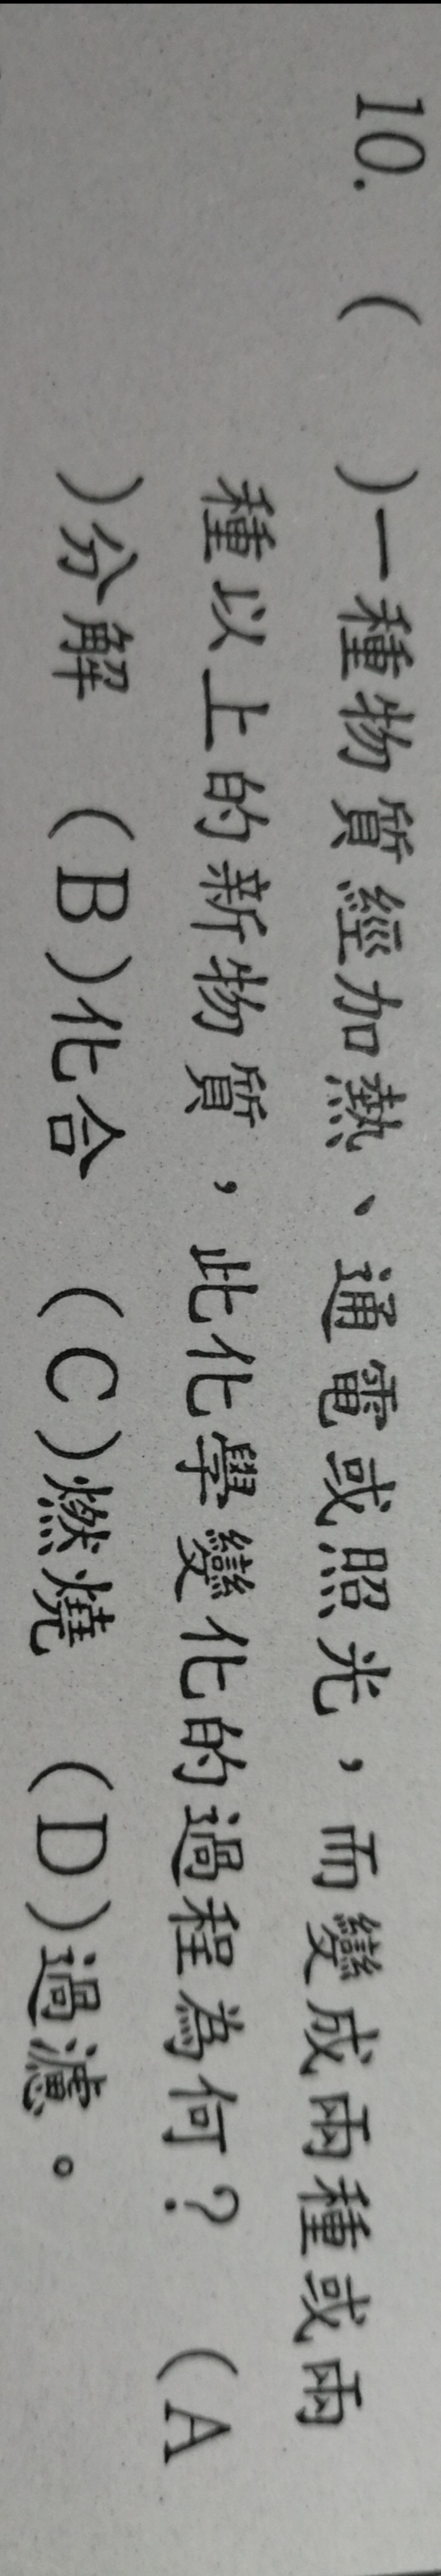 10. (　　)一種物質經加熱、通電或照光，而變成兩種或兩
種以上的新物質，此化學變化的過程為何？ (A
)分解 (B)化合 (C)燃燒 (D)過濾。